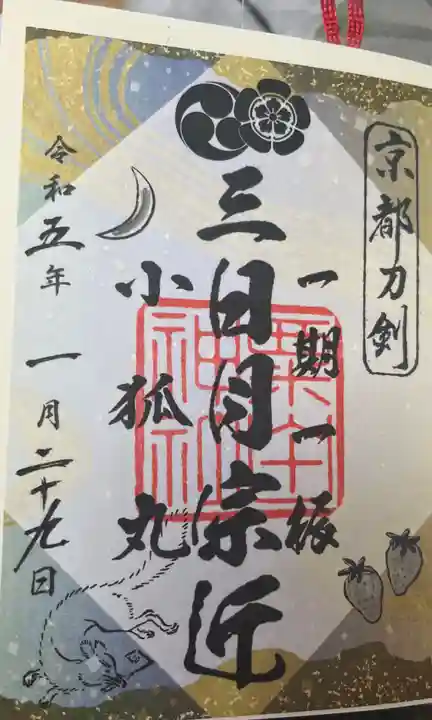 京都刀剣
一期一振
三日月宗近
小狐丸
令和五年 一月二十九日
粟田
神社